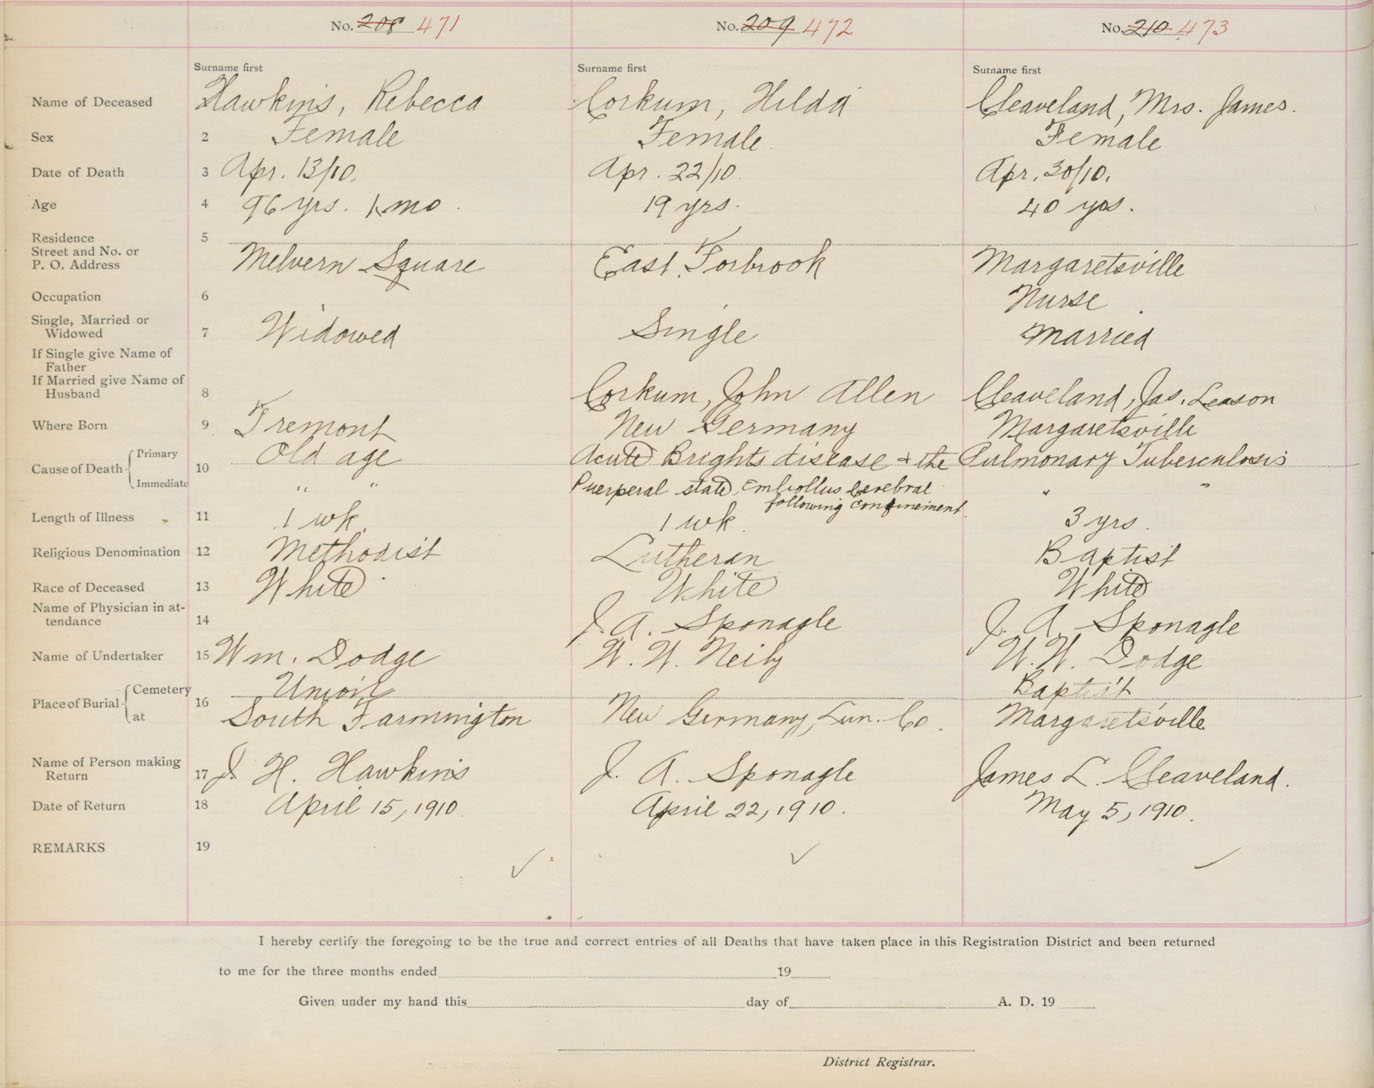 No. 208 471
No. 209 472
No. 210 473
Surname first
Surname first
Surname first
Name of Deceased Hawkins, Rebecca Corkum, Hilda Cleaveland, Mrs. James.
Sex 2 Female Female Female
Date of Death 3 Apr. 13/10. Apr. 22/10 Apr. 30/10.
Age 4 96 yrs. 1 mo. 19 yrs. 40 yrs.
Residence 5
Street and No. or
P. O. Address Melvern Square East Torbrook Margaretsville
Occupation 6 Nurse
Single, Married or
Widowed 7 Widowed Single Married
If Single give Name of
Father
If Married give Name of
Husband 8 Corkum, John Allen Cleaveland, Jas. Leason
Where Born 9 Tremont New Germany Margaretsville
Cause of Death Primary 10 Old age Acute Brights disease & the Pulmonary Tuberculosis
Immediate " " Puerperal state Embollus Cerebral " "
following confinement
Length of Illness 11 1 wk. 1 wk 3 yrs.
Religious Denomination 12 Methodist Lutheran Baptist
Race of Deceased 13 White White White
Name of Physician in at-
tendance 14 J. A. Sponagle J. A. Sponagle
Name of Undertaker 15 Wm. Dodge W. W. Neily W. W. Dodge
Place of Burial Cemetery 16 Union Baptist
at South Farmington New Germany, Lun. Co. Margaretsville
Name of Person making
Return 17 J. H. Hawkins J. A. Sponagle James L. Cleaveland.
Date of Return 18 April 15, 1910 April 22, 1910. May 5, 1910.
REMARKS 19
I hereby certify the foregoing to be the true and correct entries of all Deaths that have taken place in this Registration District and been returned
to me for the three months ended 19
Given under my hand this day of A. D. 19
District Registrar.